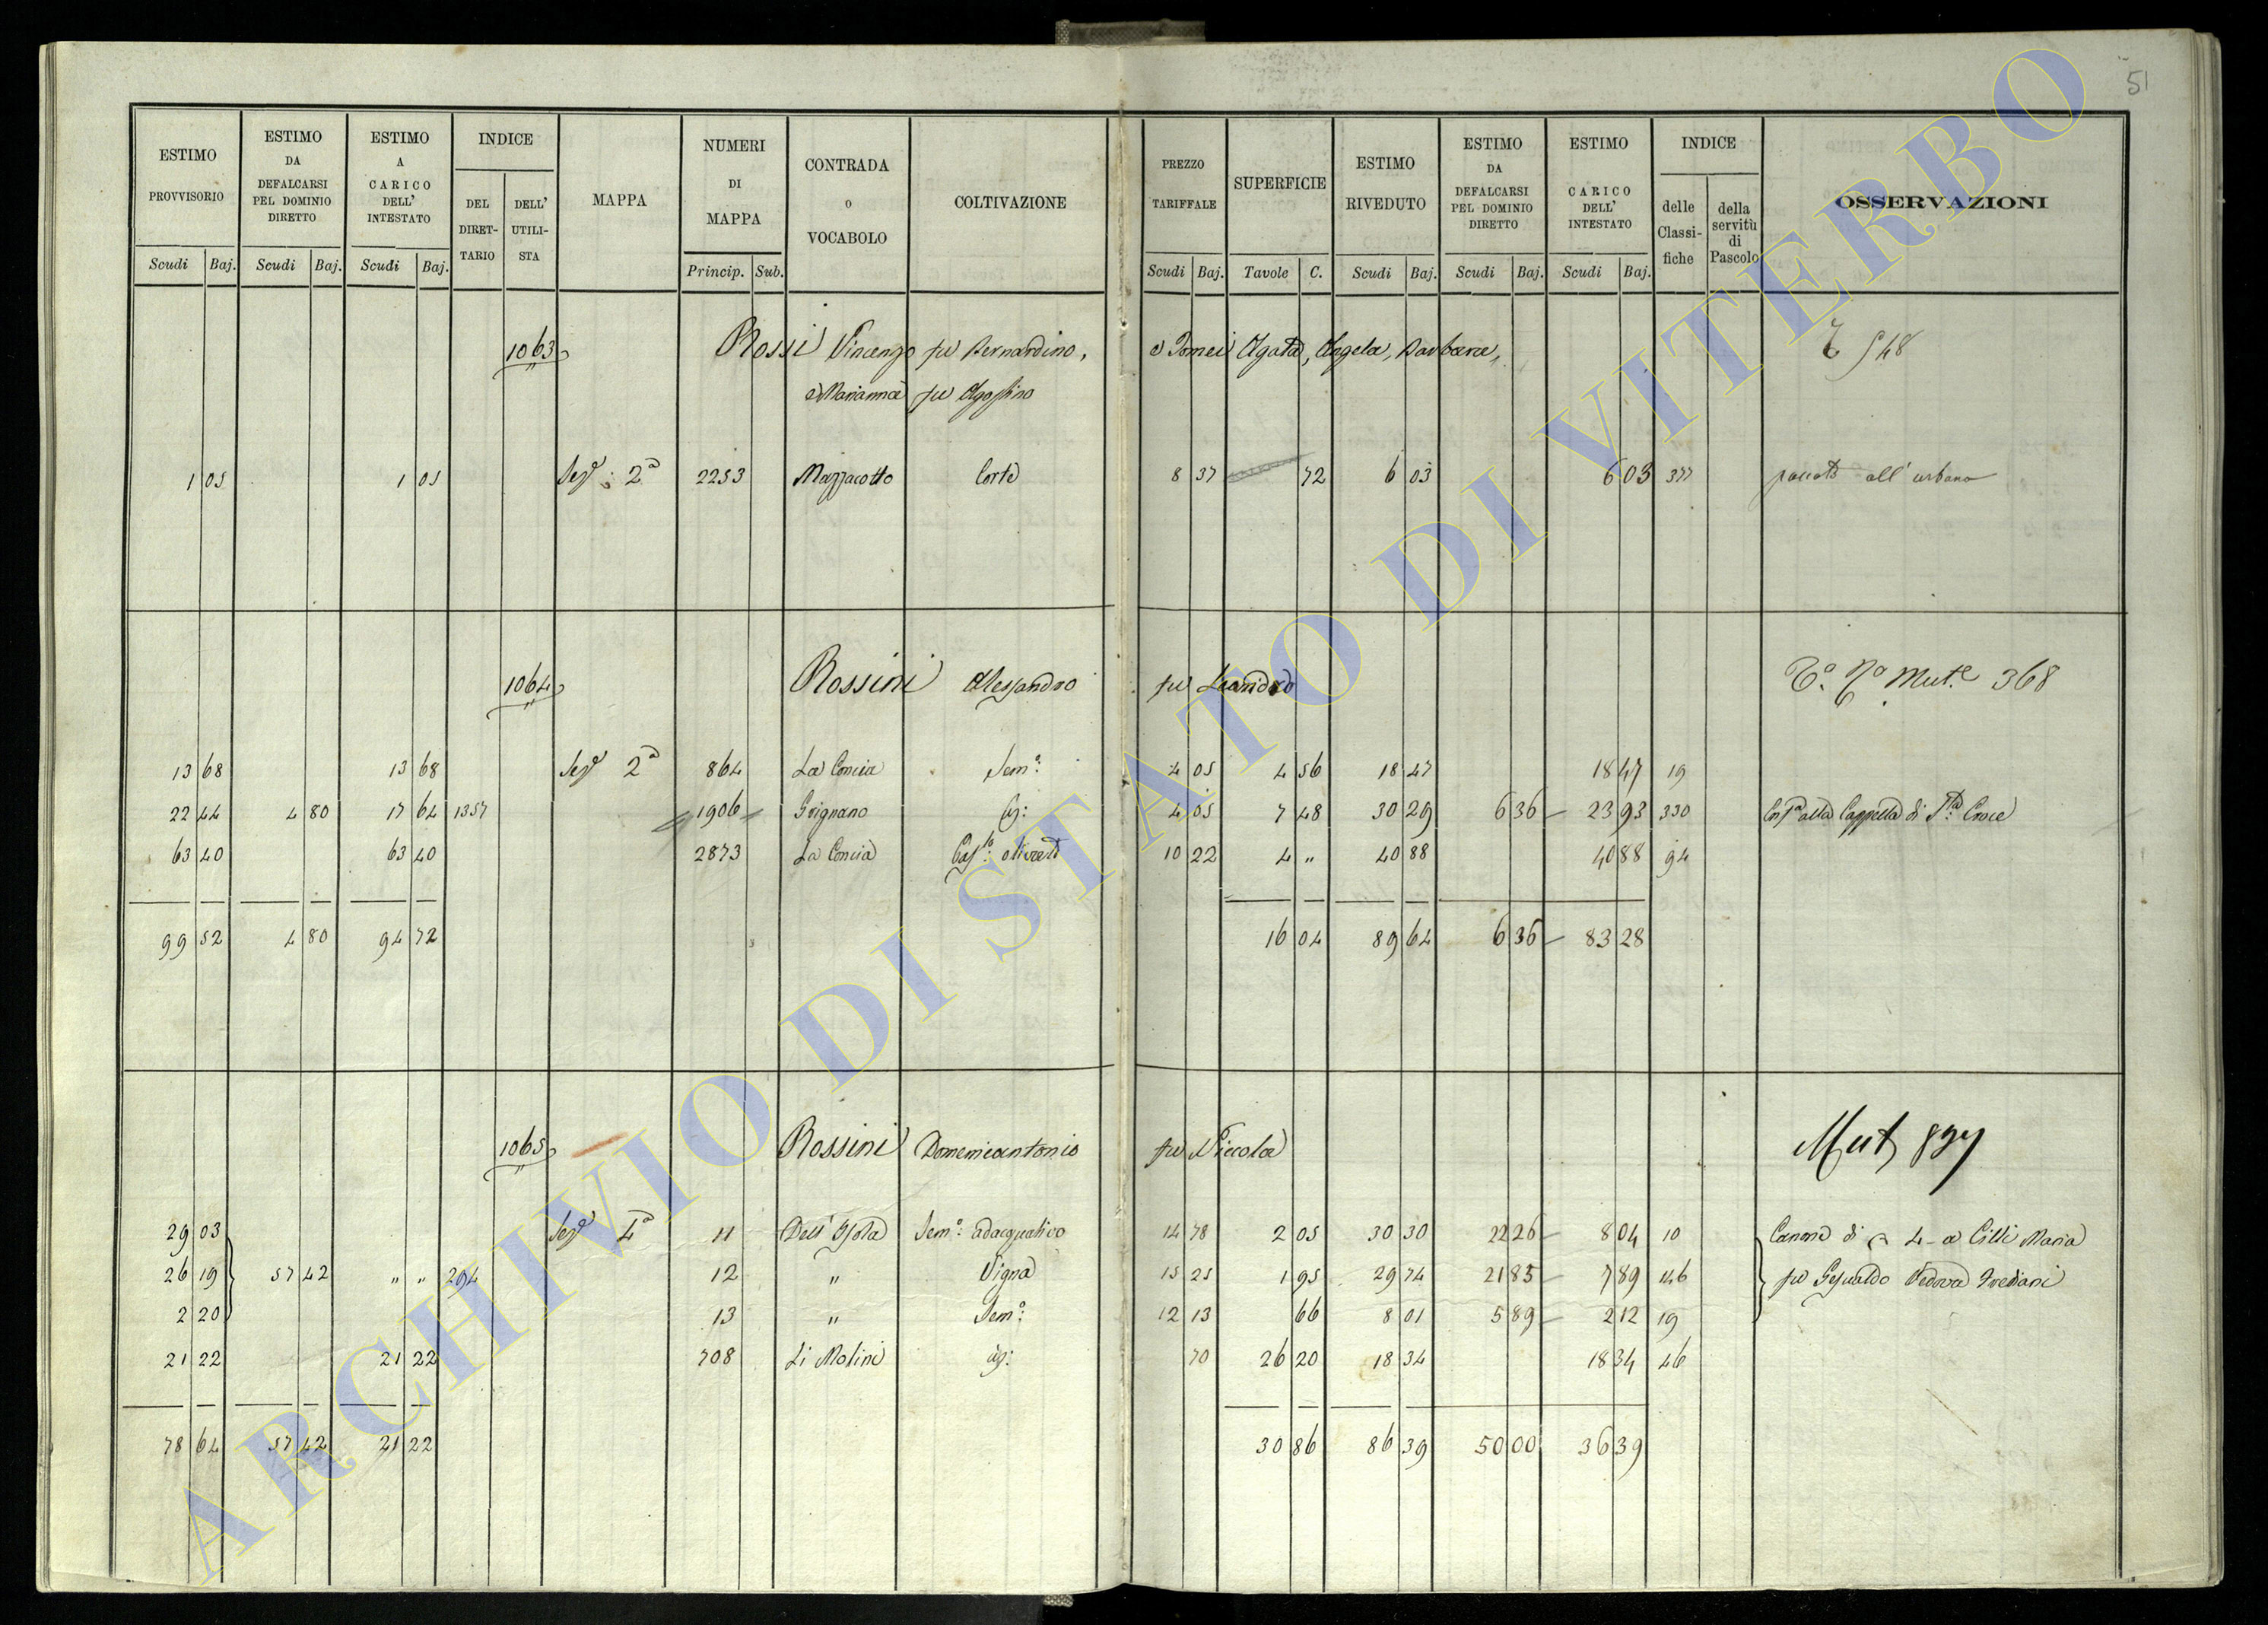 51
ESTIMO PROVVISORIO Scudi Baj.
ESTIMO DA DEFALCARSI PEL DOMINIO DIRETTO Scudi Baj.
ESTIMO A CARICO DELL' INTESTATO Scudi Baj.
INDICE DEL DIRET-TARIO DELL' UTILI-STA
MAPPA
NUMERI DI MAPPA Princip. Sub.
CONTRADA O VOCABOLO
COLTIVAZIONE
PREZZO TARIFFALE Scudi Baj.
SUPERFICIE Tavole C.
ESTIMO RIVEDUTO Scudi Baj.
ESTIMO DA DEFALCARSI PEL DOMINIO DIRETTO Scudi Baj.
ESTIMO CARICO DELL' INTESTATO Scudi Baj.
INDICE delle Classi-fiche della servitù di Pascolo
OSSERVAZIONI
1063 Rossi Vincenzo fu Bernardino, e Tomei Agata, Angela, Barbara, 548
e Marianna fu Agostino
1 05 1 05 Sez.e 2a 2253 Mazzacotto Corte 8 37 72 6 03 6 03 377 all' urbano
1064 Rossini Alessandro fu Leandro Mut.e 368
13 68 13 68 Sez.e 2a 864 La Concia Sem.o 4 05 4 56 18 47 18 47 19
22 44 4 80 17 64 1357 1906 Grignano 4 05 7 48 30 29 6 36 23 93 330 alla Cappella di S.ta Croce
63 40 63 40 2873 La Concia olivato 10 22 4 " 40 88 40 88 94
99 52 4 80 94 72 16 04 89 64 6 36 83 28
1065 Rossini Domenicantonio fu Niccola Mut 897
29 03 Sez.e 4a 11 Dell' Isola Sem.o adacquativo 14 78 2 05 30 30 22 26 8 04 10 Canone di 4 a Cilli Maria
26 19 57 42 " " 294 12 " Vigna 15 25 1 95 29 74 21 85 7 89 146 fu Gesualdo Vedova Frediani
2 20 13 " Sem.o 12 13 66 8 01 5 89 2 12 19
21 22 21 22 708 Li Molini 70 26 20 18 34 18 34 46
78 64 57 42 21 22 30 86 86 39 50 00 36 39
ARCHIVIO DI STATO DI VITERBO